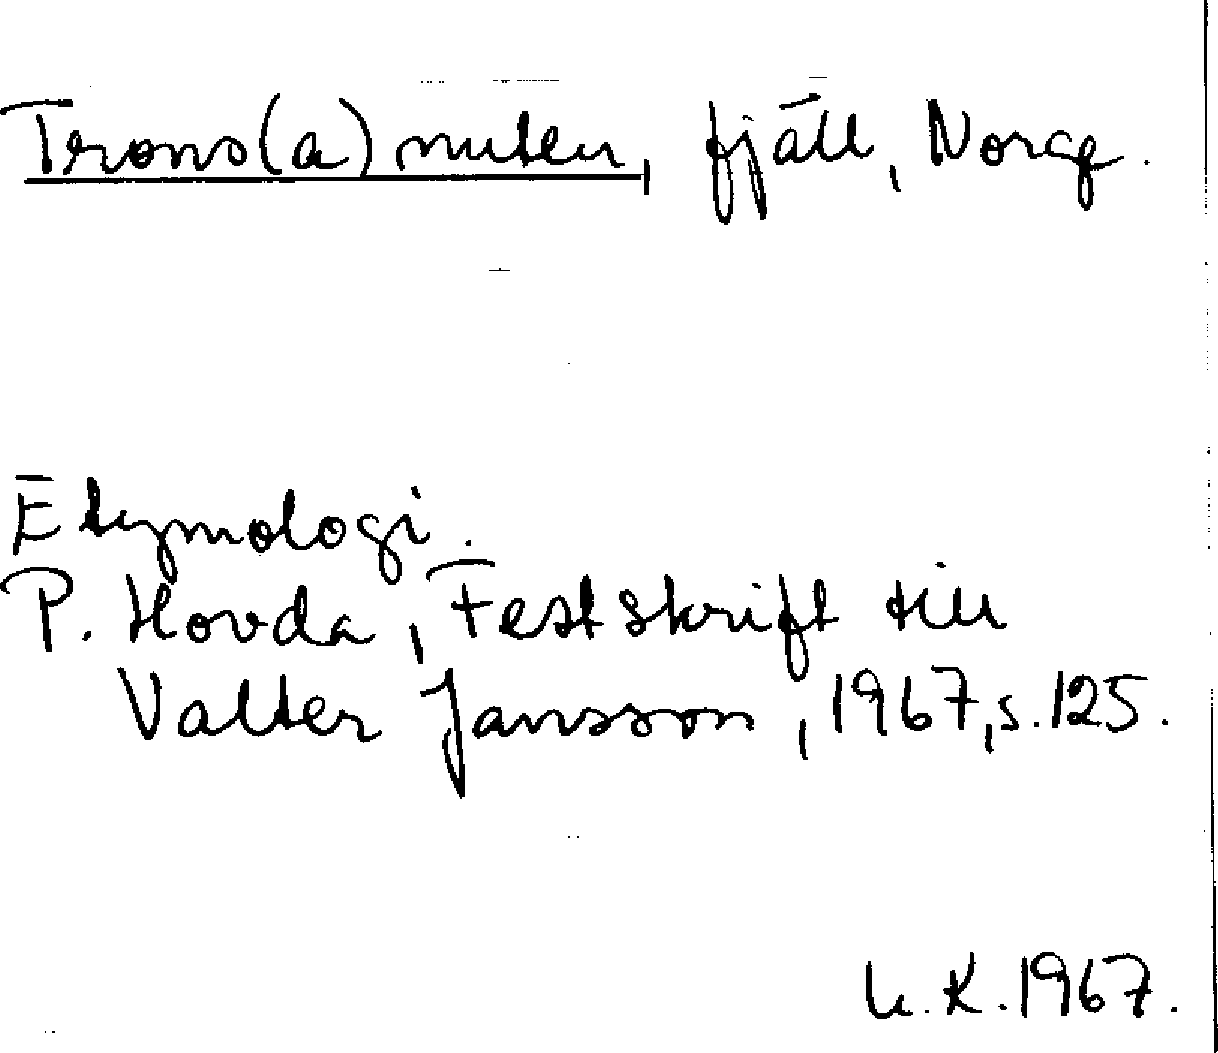 Trons(a)nuten, fjäll, Norge.
Etymologi.
P. Hovda, Festskrift till
Valter Jansson, 1967, s. 125.
U.K. 1967.